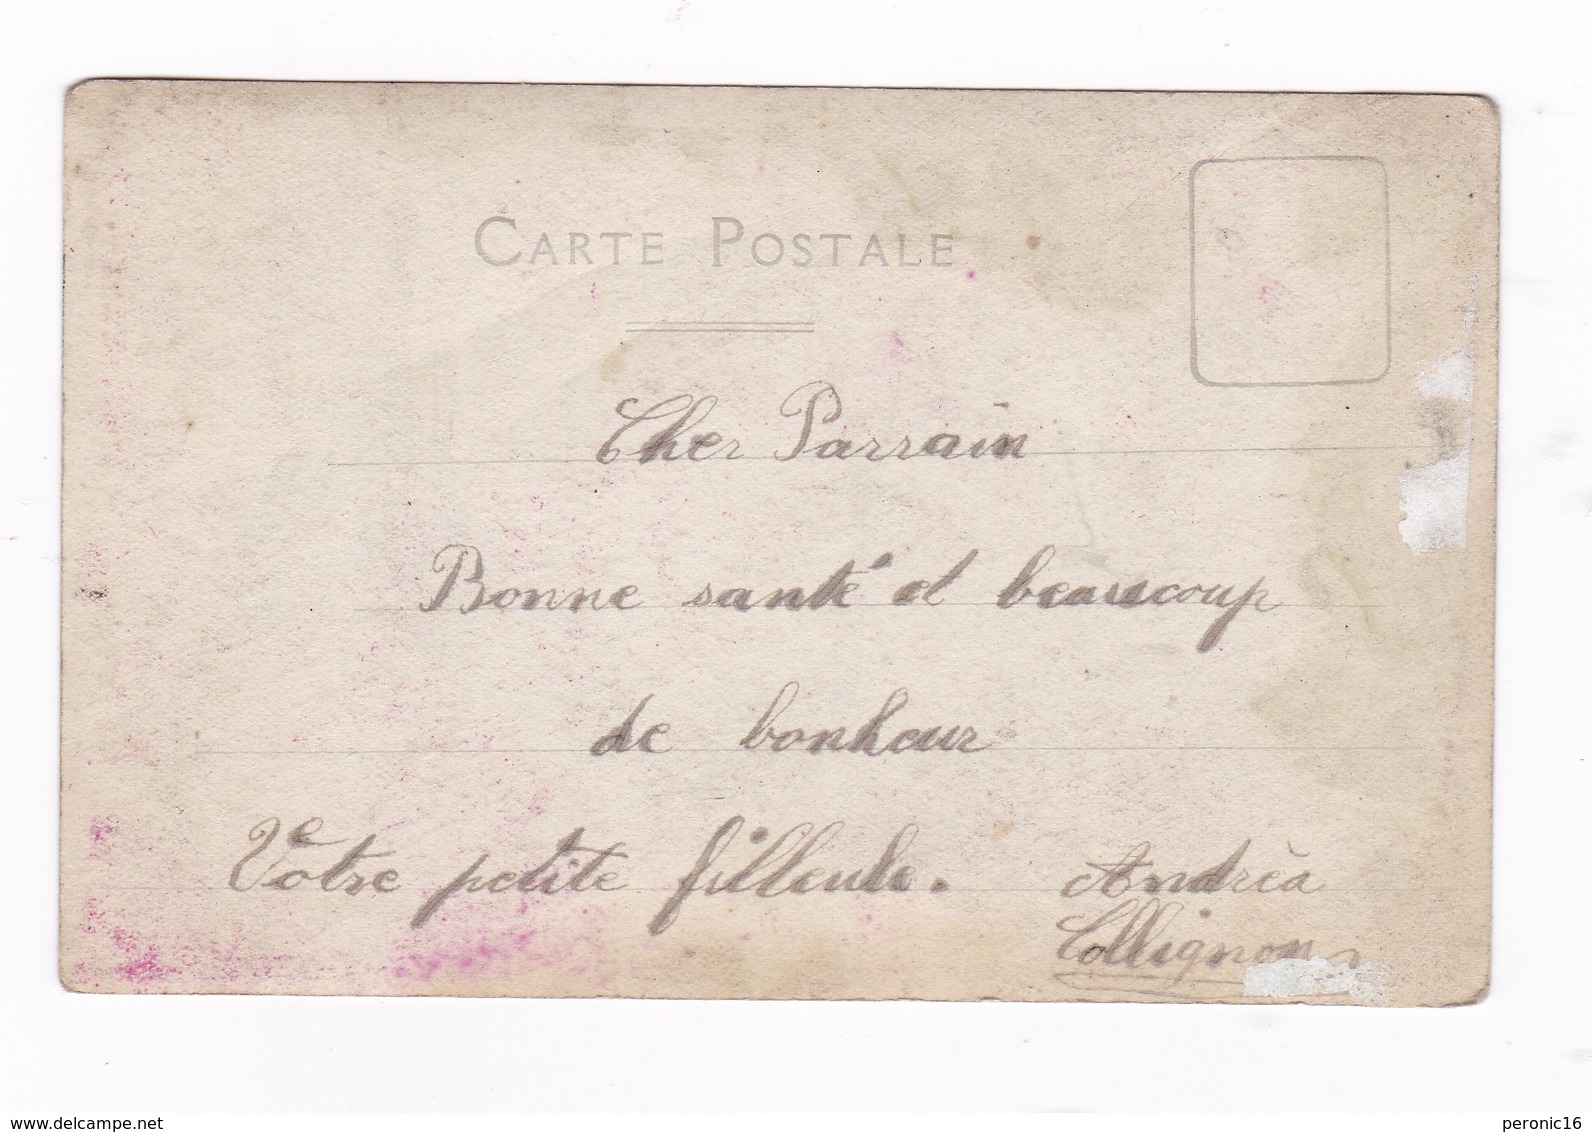 CARTE POSTALE
Cher Parrain
Bonne santé et beaucoup
de bonheur
Votre petite filleule. Andrèa
Collignon
www.delcampe.net
peronic16